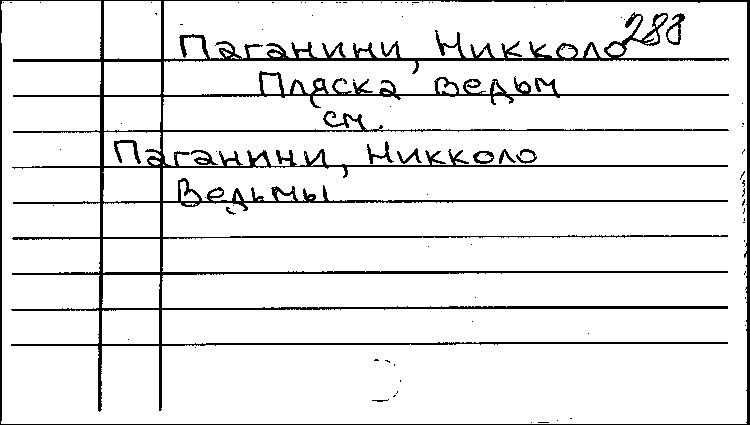 288
Паганини, Никколо
Пляска ведьм
см.
Паганини, Никколо
Ведьмы